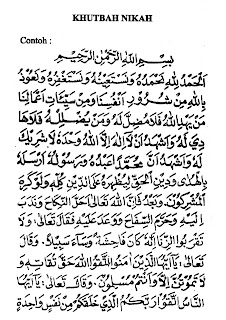 KHUTBAH NIKAH
Contoh :
بِسْمِ اللهِ الرَّحْمٰنِ الرَّحِيْمِ
اَلْحَمْدُ لِلّٰهِ نَحْمَدُهُ وَنَسْتَعِيْنُهُ وَنَسْتَغْفِرُهُ وَنَعُوْذُ
بِاللهِ مِنْ شُرُوْرِ اَنْفُسِنَا وَمِنْ سَيِّئَاتِ اَعْمَالِنَا
مَنْ يَهْدِ اللهُ فَلَا مُضِلَّ لَهُ وَمَنْ يُضْلِلْهُ فَلَا هَا
دِيَ لَهُ وَاَشْهَدُ اَنْ لَا اِلٰهَ اِلَّا اللهُ وَحْدَهُ لَا شَرِيْكَ
لَهُ وَاَشْهَدُ اَنَّ مُحَمَّدًا عَبْدُهُ وَرَسُوْلُهُ اَرْسَلَهُ
بِالْهُدٰى وَدِيْنِ الْحَقِّ لِيُظْهِرَهُ عَلَى الدِّيْنِ كُلِّهِ وَلَوْ كَرِهَ
الْمُشْرِكُوْنَ. وَبَعْدُ فَاِنَّ اللهَ تَعَالٰى اَحَلَّ النِّكَاحَ وَنَدَبَ
اِلَيْهِ وَحَرَّمَ السِّفَاحَ وَوَعَدَ عَلَيْهِ فَقَالَ تَعَالٰى: وَلَا
تَقْرَبُوا الزِّنَا اِنَّهُ كَانَ فَاحِشَةً وَسَاءَ سَبِيْلًا. وَقَالَ
تَعَالٰى: يَا اَيُّهَا الَّذِيْنَ اٰمَنُوا اتَّقُوا اللهَ حَقَّ تُقَاتِهِ وَ
لَا تَمُوْتُنَّ اِلَّا وَاَنْتُمْ مُسْلِمُوْنَ. وَقَالَ تَعَالٰى: يَا اَيُّهَا
النَّاسُ اتَّقُوْا رَبَّكُمُ الَّذِيْ خَلَقَكُمْ مِنْ نَفْسٍ وَاحِدَةٍ